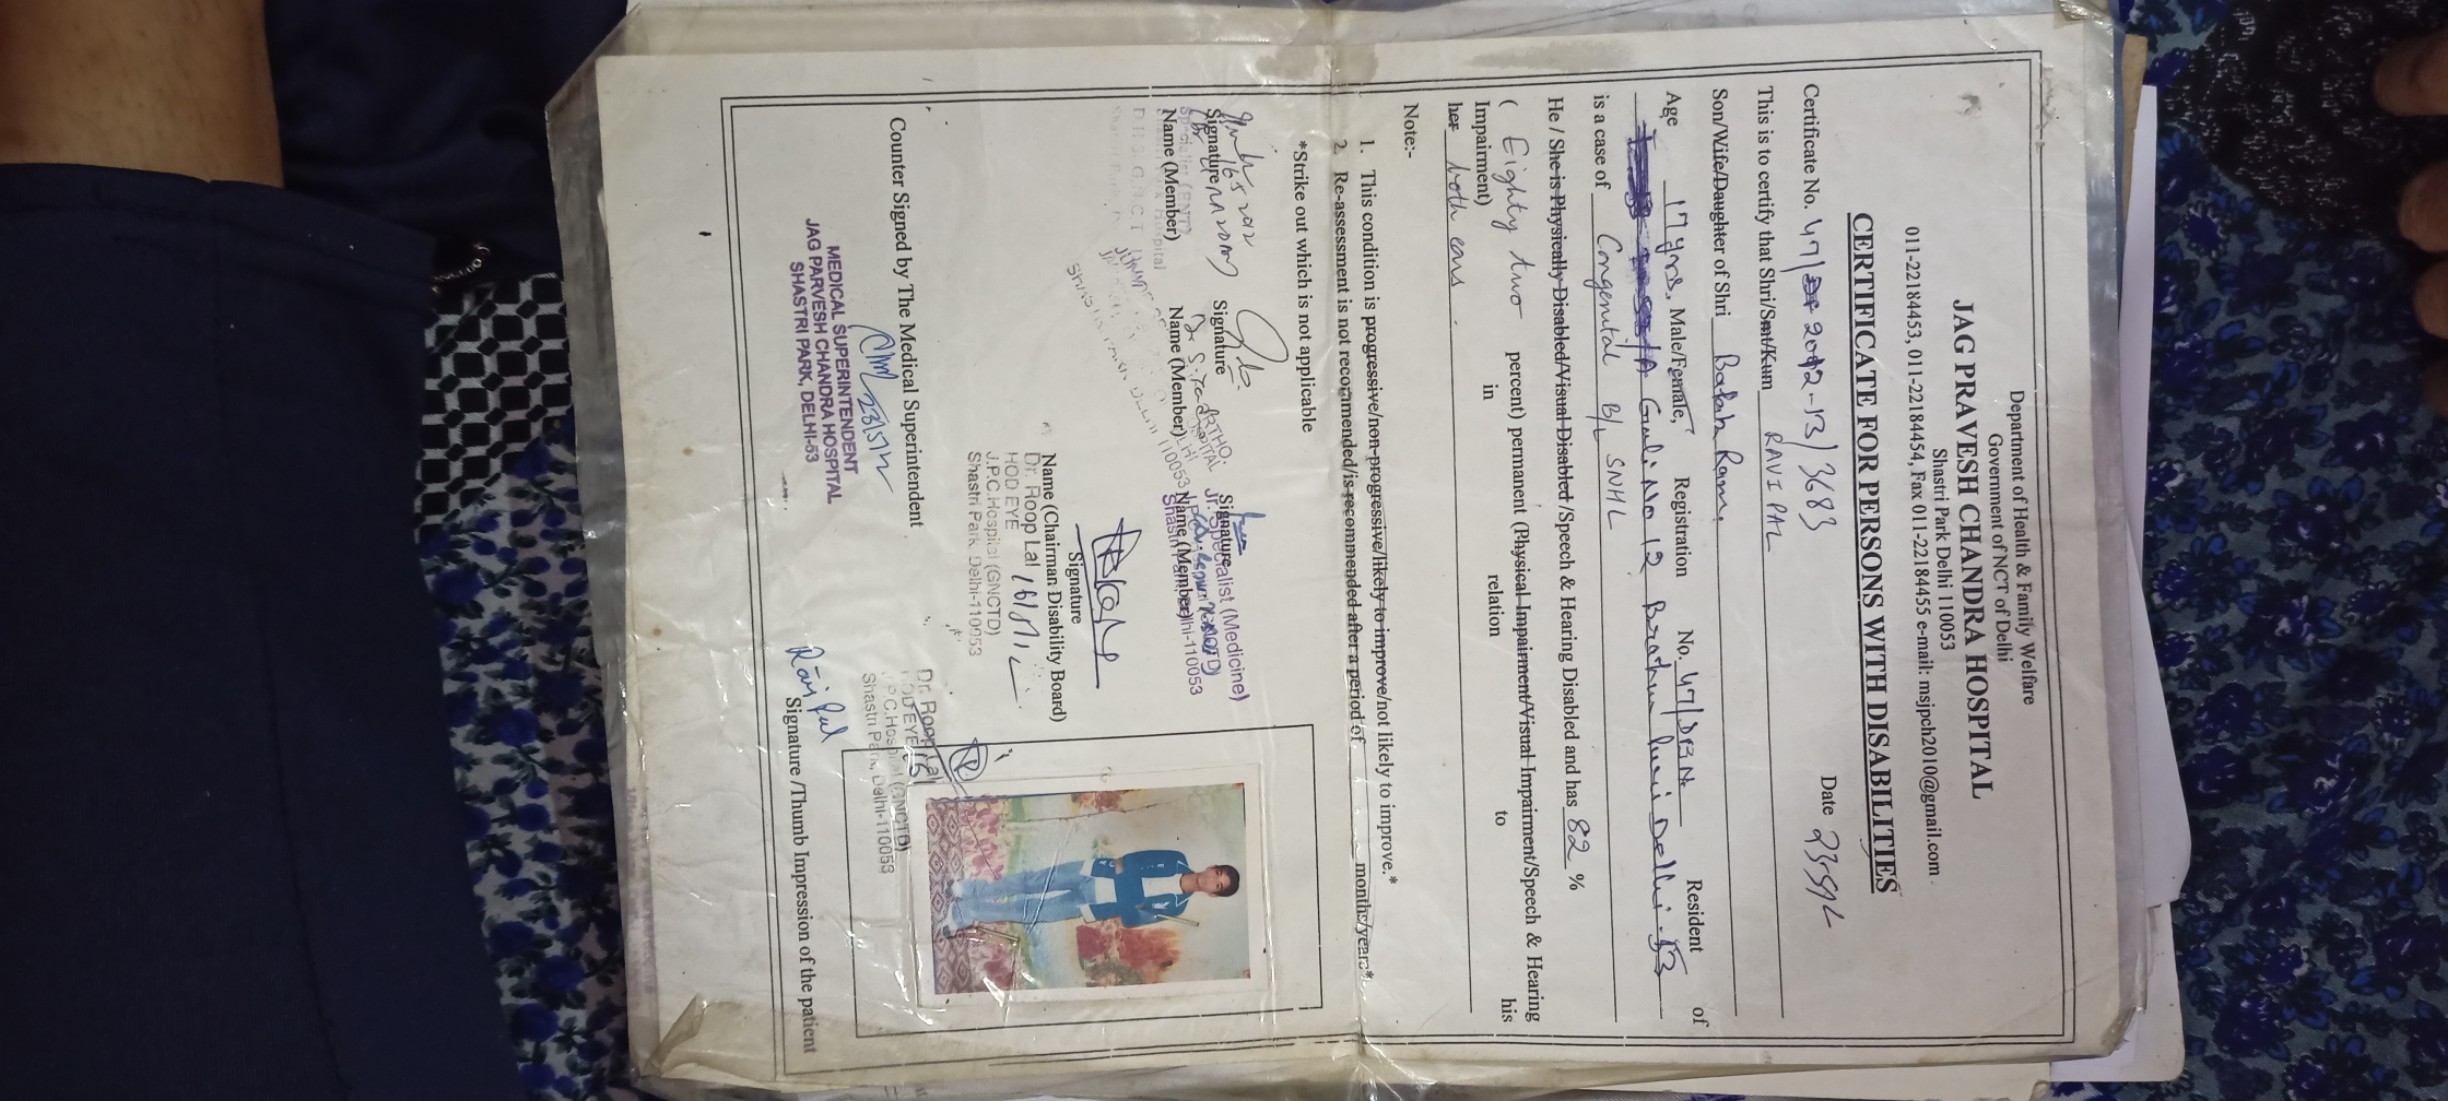 Department of Health & Family Welfare
Government of NCT of Delhi
JAG PRAVESH CHANDRA HOSPITAL
Shastri Park Delhi 110053
011-22184453, 011-22184454, Fax 011-22184455 e-mail: msjpch2010@gmail.com
CERTIFICATE FOR PERSONS WITH DISABILITIES
Certificate No. 47/ 2012-13/3683 Date 23/5/12
This is to certify that Shri/Smt/Kum RAVI PAL
Son/Wife/Daughter of Shri Ram
Age 17 yrs, Male/Female, Registration No. 47/ Resident of
Gali No 12 Delhi-53
is a case of Congenital B/L SNHL
He / She is Physically Disabled/Visual Disabled /Speech & Hearing Disabled and has 82 %
( Eighty two percent) permanent (Physical Impairment/Visual Impairment/Speech & Hearing
Impairment) in relation to his
her both ears.
Note:-
1. This condition is progressive/non-progressive/likely to improve/not likely to improve.*
2. Re-assessment is not recommended/is recommended after a period of months/years*.
*Strike out which is not applicable
Signature Signature Signature
Name (Member) Name (Member) Name (Member)
Jr. Specialist (Medicine)
Signature
Name (Chairman Disability Board)
Dr. Roop Lal
HOD EYE
J.P.C.Hospital (GNCTD)
Shastri Park, Delhi-110053
16/5/12
Dr. Roop Lal
HOD EYE
J.P.C.Hospital (GNCTD)
Shastri Park, Delhi-110053
Counter Signed by The Medical Superintendent
23/5/12
MEDICAL SUPERINTENDENT
JAG PARVESH CHANDRA HOSPITAL
SHASTRI PARK, DELHI-53
Ravi Pal
Signature /Thumb Impression of the patient